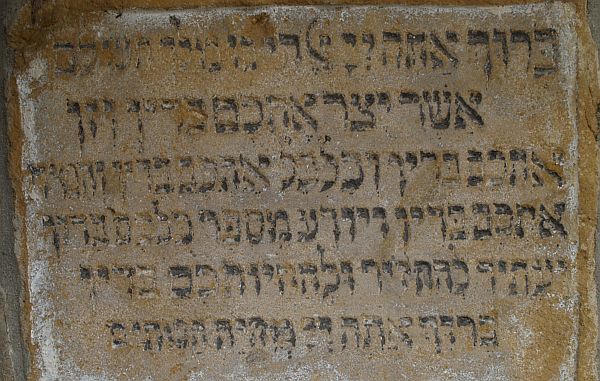 ברוך אתה יי אלהינו מלך העולם
אשר יצר אתכם בדין וזן
אתכם בדין וכלכל אתכם בדין והמית
אתכם בדין ויודע מספר כלכם בדין
ועתיד להחזיר ולהחיות כם בדין
ברוך אתה יי מחיה המתים